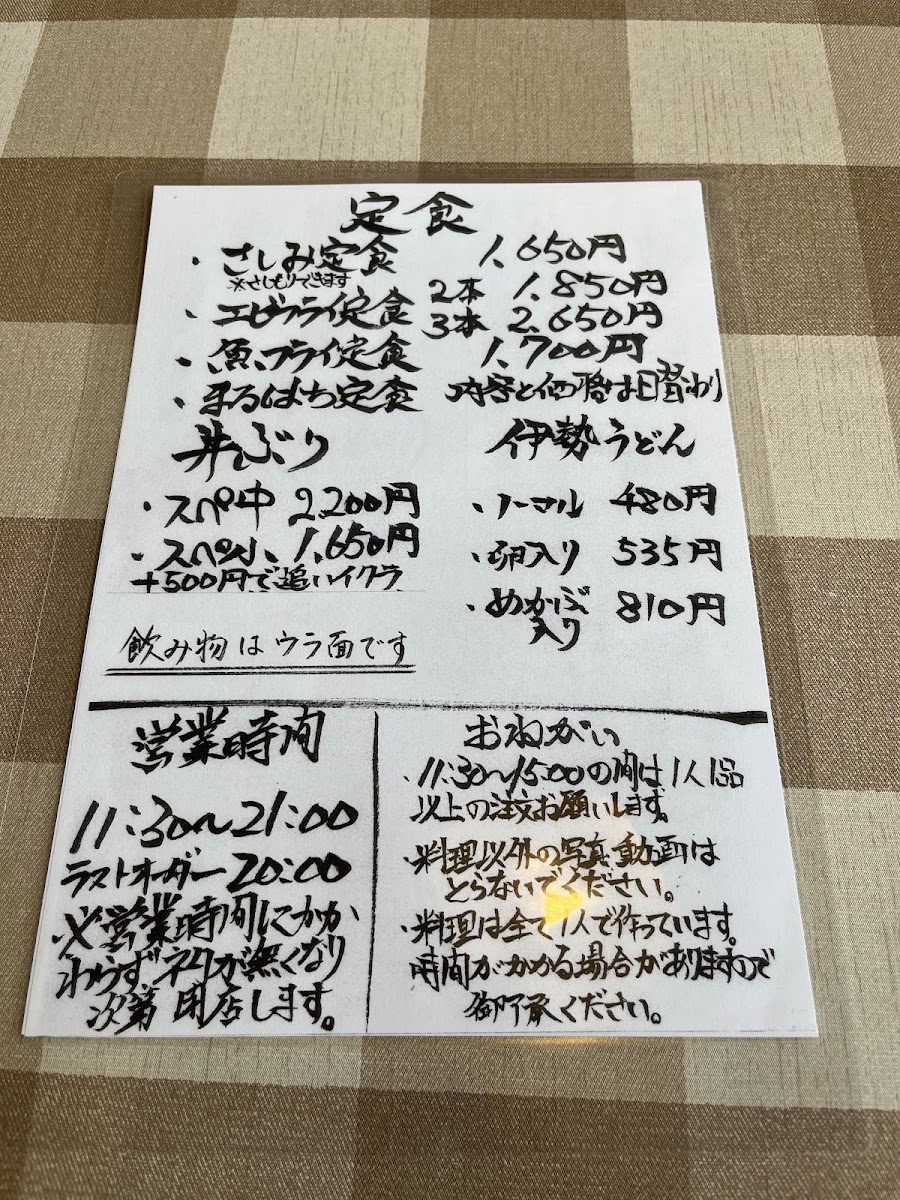 定食
・さしみ定食 1,650円
※さしもりできます
・エビフライ定食 2本 1,850円
3本 2,650円
・魚フライ定食 1,700円
・まるはち定食 内容と価格は日替わり
丼ぶり
・スペ中 2,200円
・スペ小 1,650円
+500円で追いイクラ
伊勢うどん
・ノーマル 480円
・卵入り 535円
・めかぶ入り 810円
飲み物はウラ面です
営業時間
11:30〜21:00
ラストオーダー20:00
※営業時間にかか
わらずネタが無くなり
次第閉店します。
おねがい
・11:30〜15:00の間は1人1品
以上の注文お願いします。
・料理以外の写真動画は
とらないでください。
・料理は全て1人で作っています。
時間がかかる場合がありますので
御了承ください。